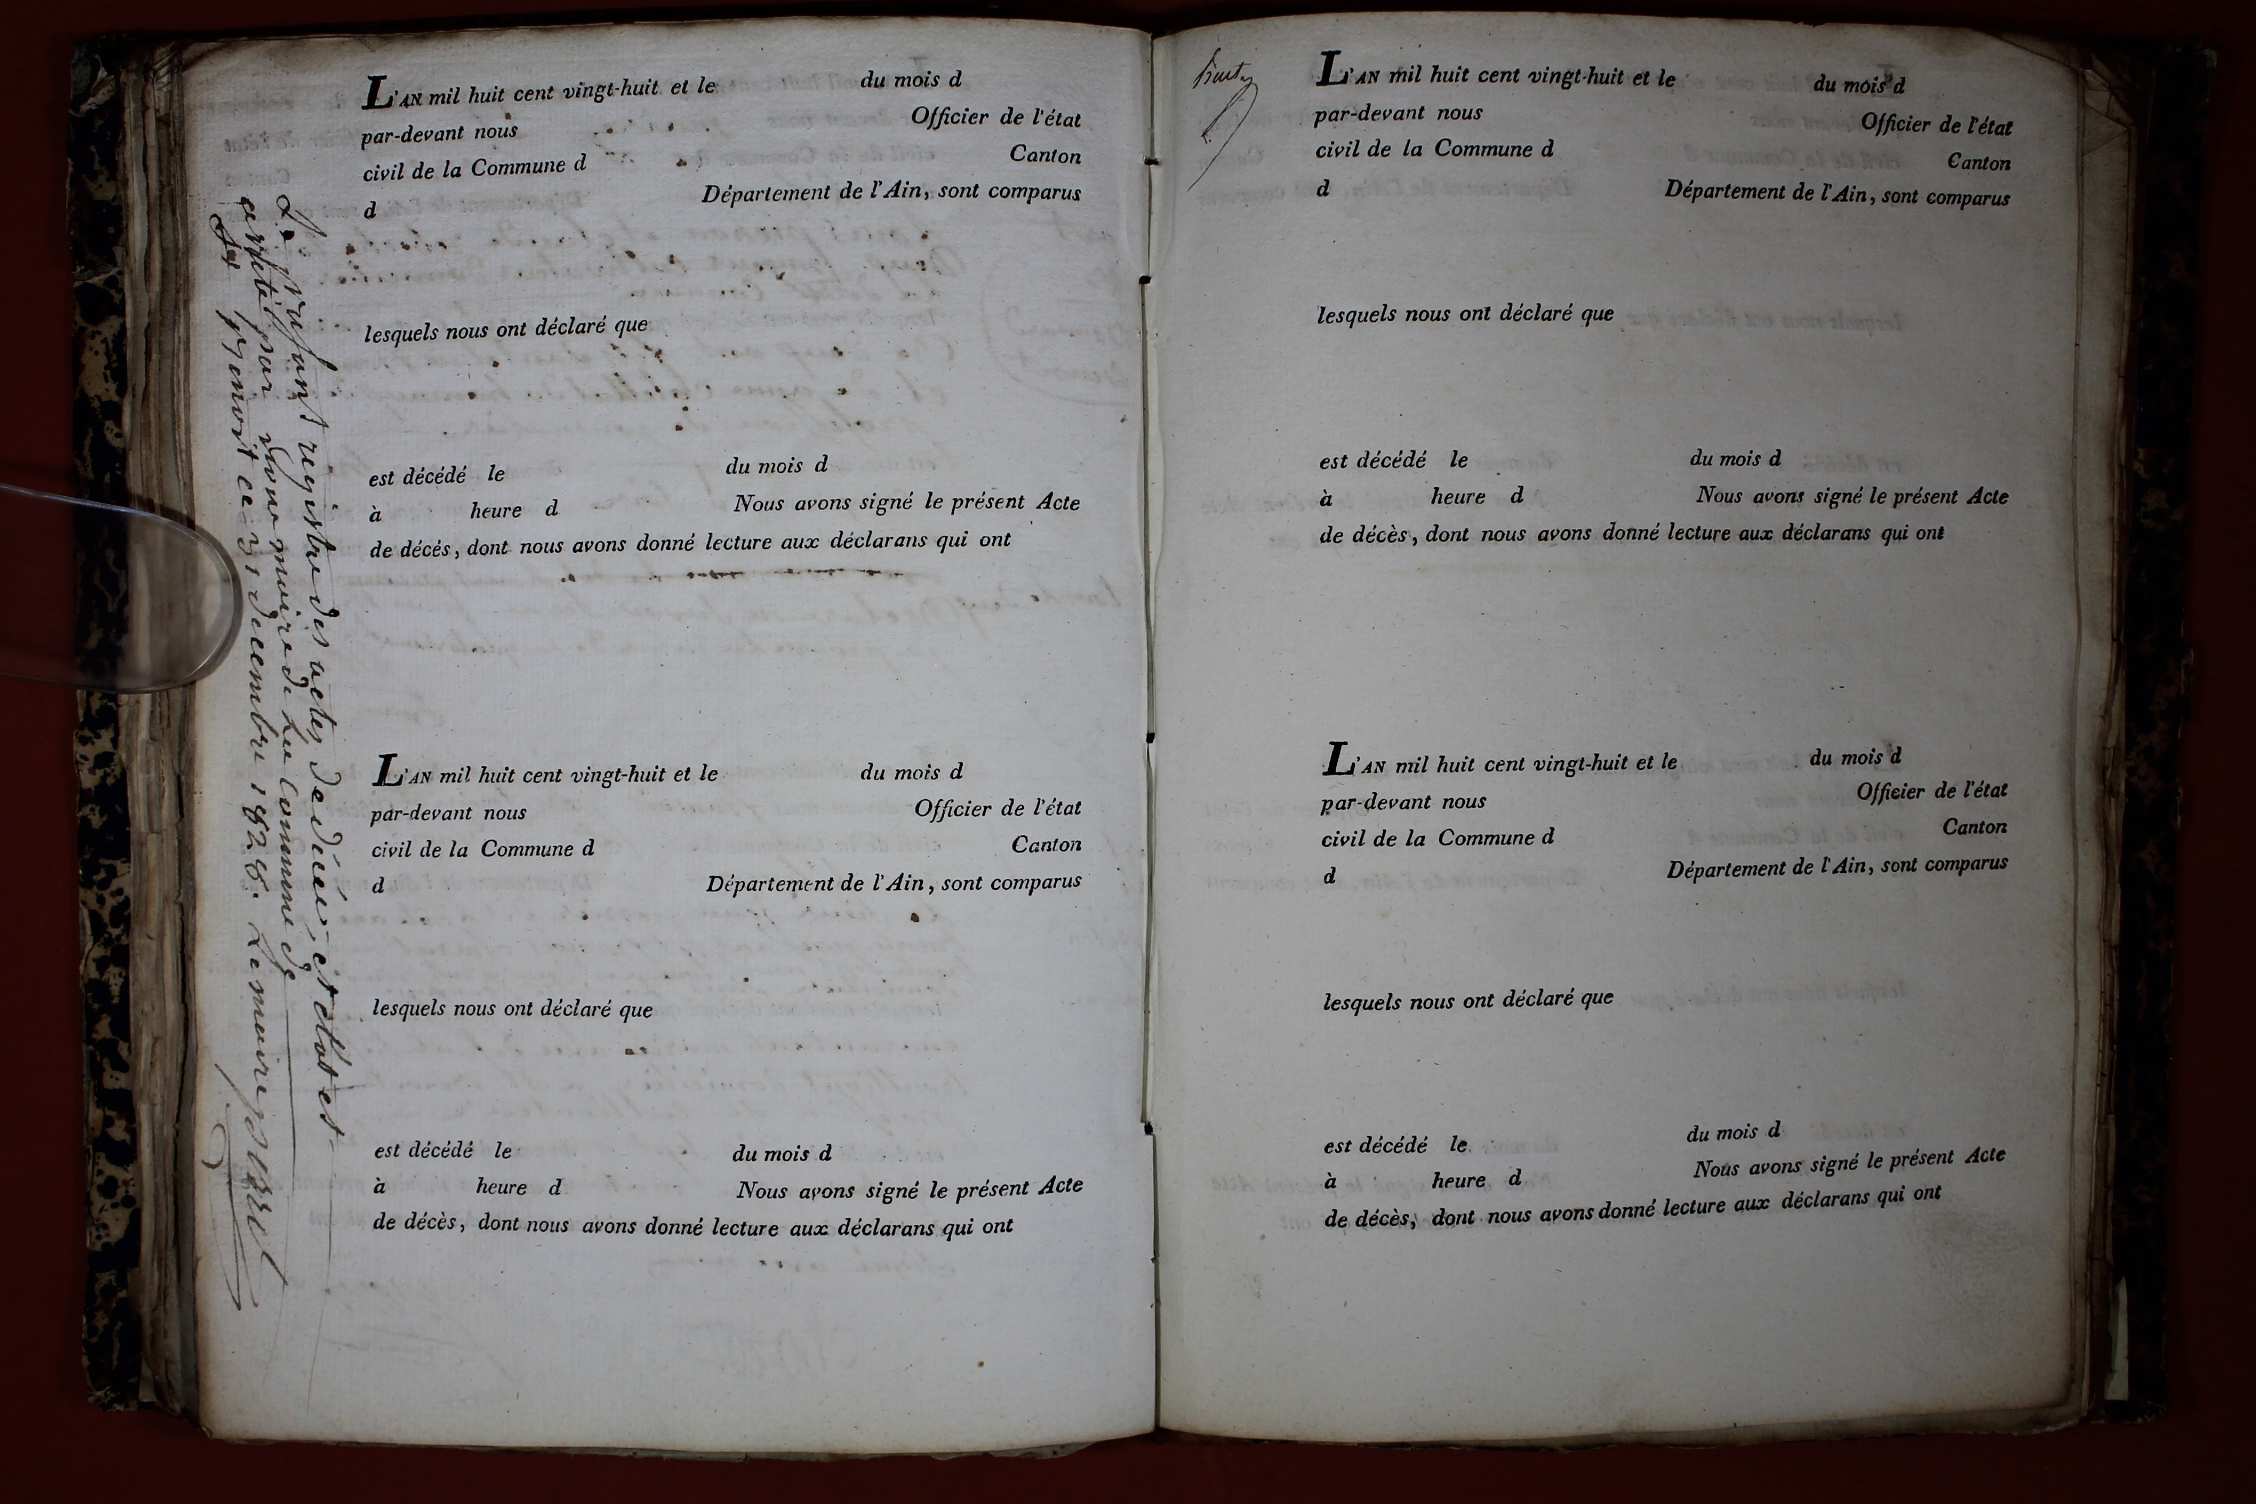 Le présent registre des actes de décés, et clot et
arreté par nous maire de La Commune de
ce 31 decembre 1828. Le maire
L'AN mil huit cent vingt-huit et le du mois d
par-devant nous Officier de l'état
civil de la Commune d Canton
d Département de l'Ain, sont comparus
lesquels nous ont déclaré que
est décédé le du mois d
à heure d Nous avons signé le présent Acte
de décés, dont nous avons donné lecture aux déclarans qui ont
L'AN mil huit cent vingt-huit et le du mois d
par-devant nous Officier de l'état
civil de la Commune d Canton
d Département de l'Ain, sont comparus
lesquels nous ont déclaré que
est décédé le du mois d
à heure d Nous avons signé le présent Acte
de décès, dont nous avons donné lecture aux déclarans qui ont
L'AN mil huit cent vingt-huit et le du mois d
par-devant nous Officier de l'état
civil de la Commune d Canton
d Département de l'Ain, sont comparus
lesquels nous ont déclaré que
est décédé le du mois d
à heure d Nous avons signé le présent Acte
de décès, dont nous avons donné lecture aux déclarans qui ont
L'AN mil huit cent vingt-huit et le du mois d
par-devant nous Officier de l'état
civil de la Commune d Canton
d Département de l'Ain, sont comparus
lesquels nous ont déclaré que
est décédé le du mois d
à heure d Nous avons signé le présent Acte
de décès, dont nous avons donné lecture aux déclarans qui ont